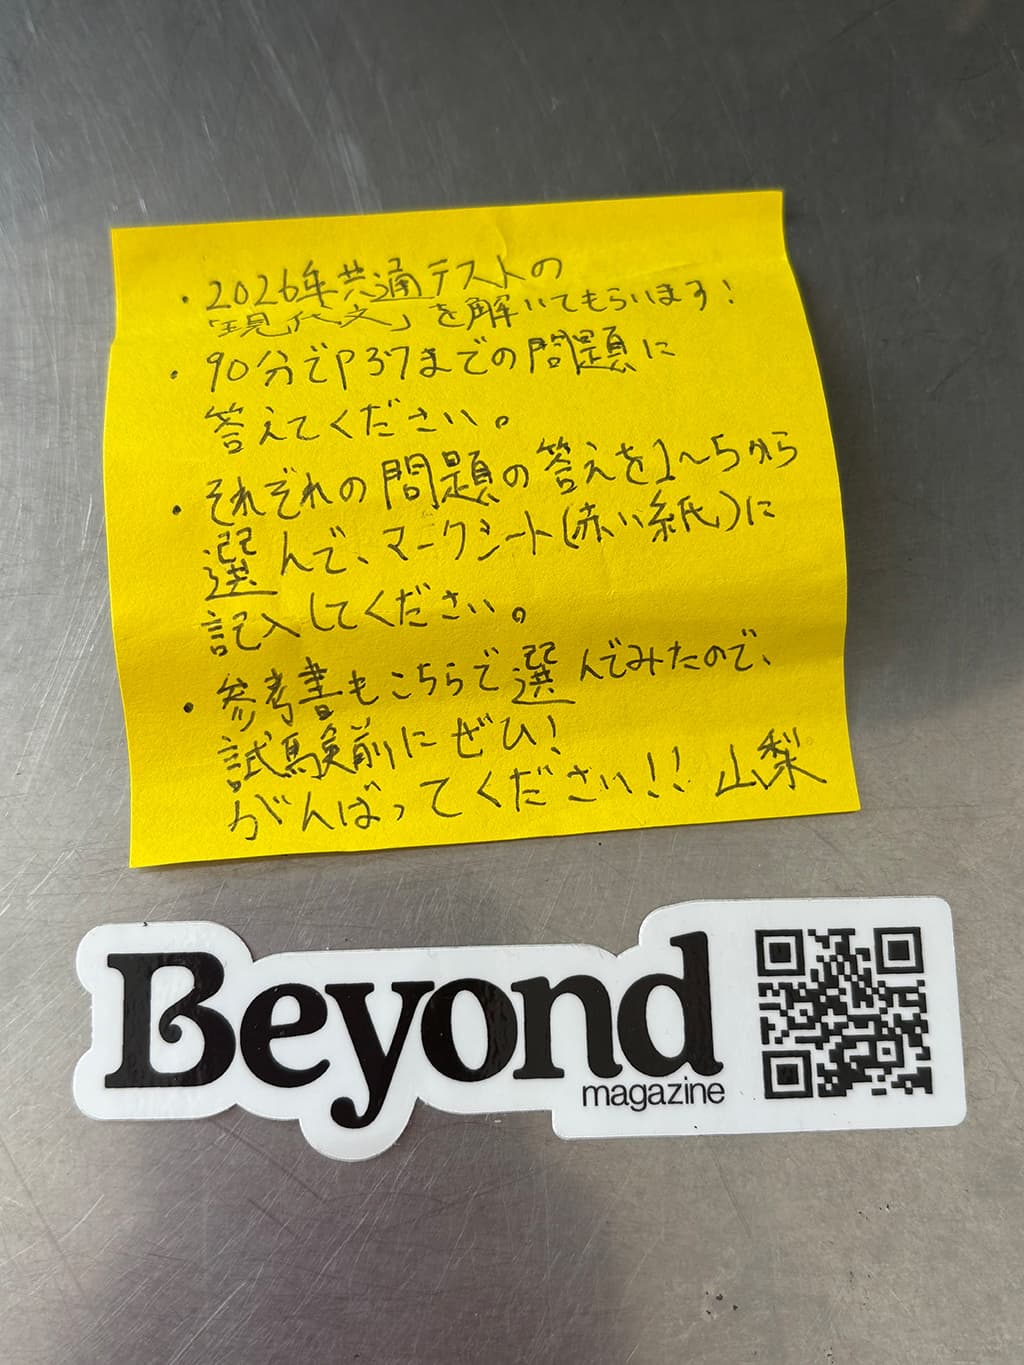 ・2026年共通テストの
「現代文」を解いてもらいます!
・90分でP37までの問題に
答えてください。
・それぞれの問題の答えを1~5から
選んで、マークシート(赤い紙)に
記入してください。
・参考書もこちらで選んでみたので、
試験前にぜひ!
がんばってください!! 山梨
Beyond
magazine